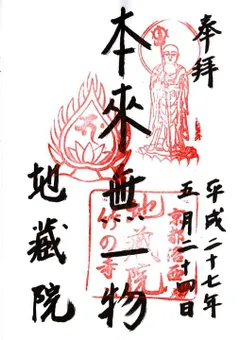 奉拝
平成二十七年
五月二十四日
本來無一物
地蔵院
京都洛西
地蔵院
竹の寺